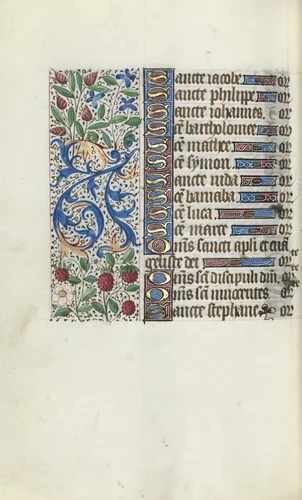 Sancte iacobe or
Sancte philippe or
Sancte iohannes or
Sce bartholomee or
Sce mathee or
Sce symon or
Sancte iuda or
Sce barnaba or
Sce luca or
Sce marce or
Oms sancti apli et euā
geliste dei or
Oms sci discipuli dm̄ or
Oms sci innocentes or
Sancte stephane or